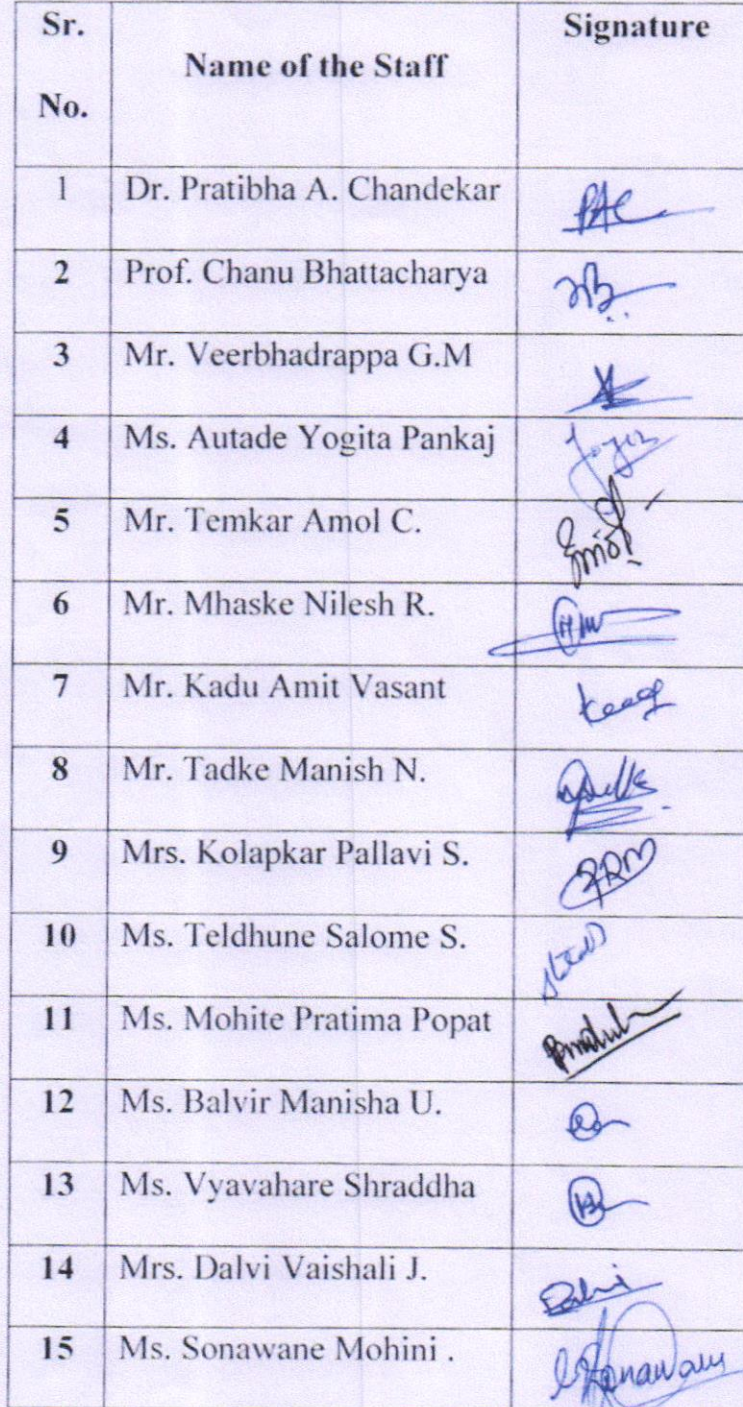 Sr. No. Name of the Staff Signature
1 Dr. Pratibha A. Chandekar PAC
2 Prof. Chanu Bhattacharya
3 Mr. Veerbhadrappa G.M
4 Ms. Autade Yogita Pankaj
5 Mr. Temkar Amol C.
6 Mr. Mhaske Nilesh R.
7 Mr. Kadu Amit Vasant
8 Mr. Tadke Manish N.
9 Mrs. Kolapkar Pallavi S.
10 Ms. Teldhune Salome S.
11 Ms. Mohite Pratima Popat
12 Ms. Balvir Manisha U.
13 Ms. Vyavahare Shraddha
14 Mrs. Dalvi Vaishali J. Dalvi
15 Ms. Sonawane Mohini .